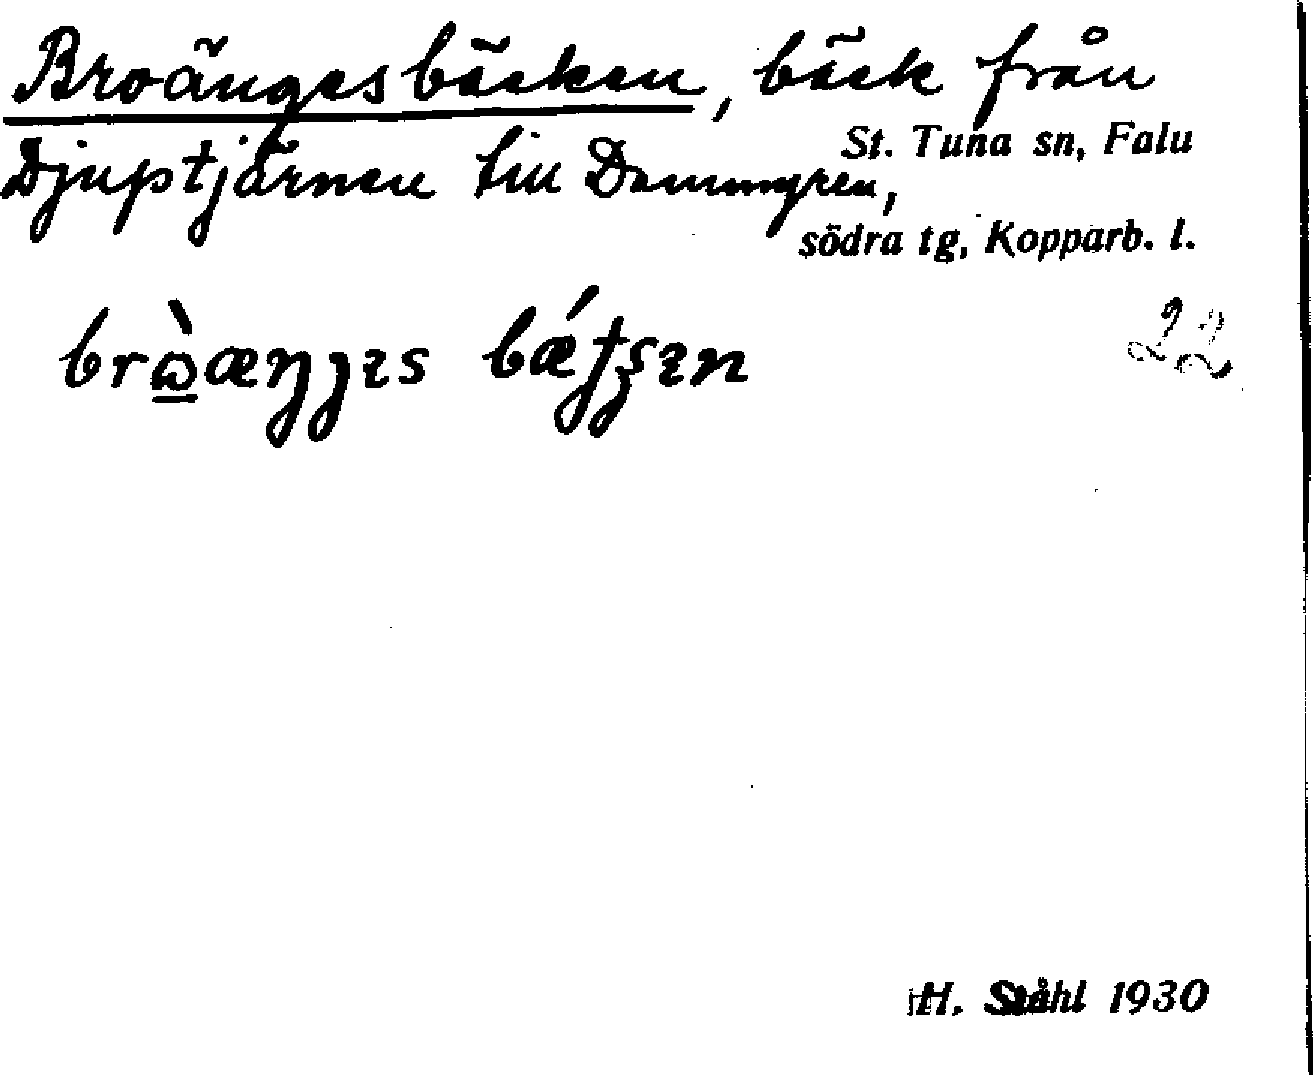 Broängesbäcken, bäck från
St. Tuna sn, Falu
Djuptjärnen till Dammyren,
södra tg, Kopparb. l.
22
H. Ståhl 1930